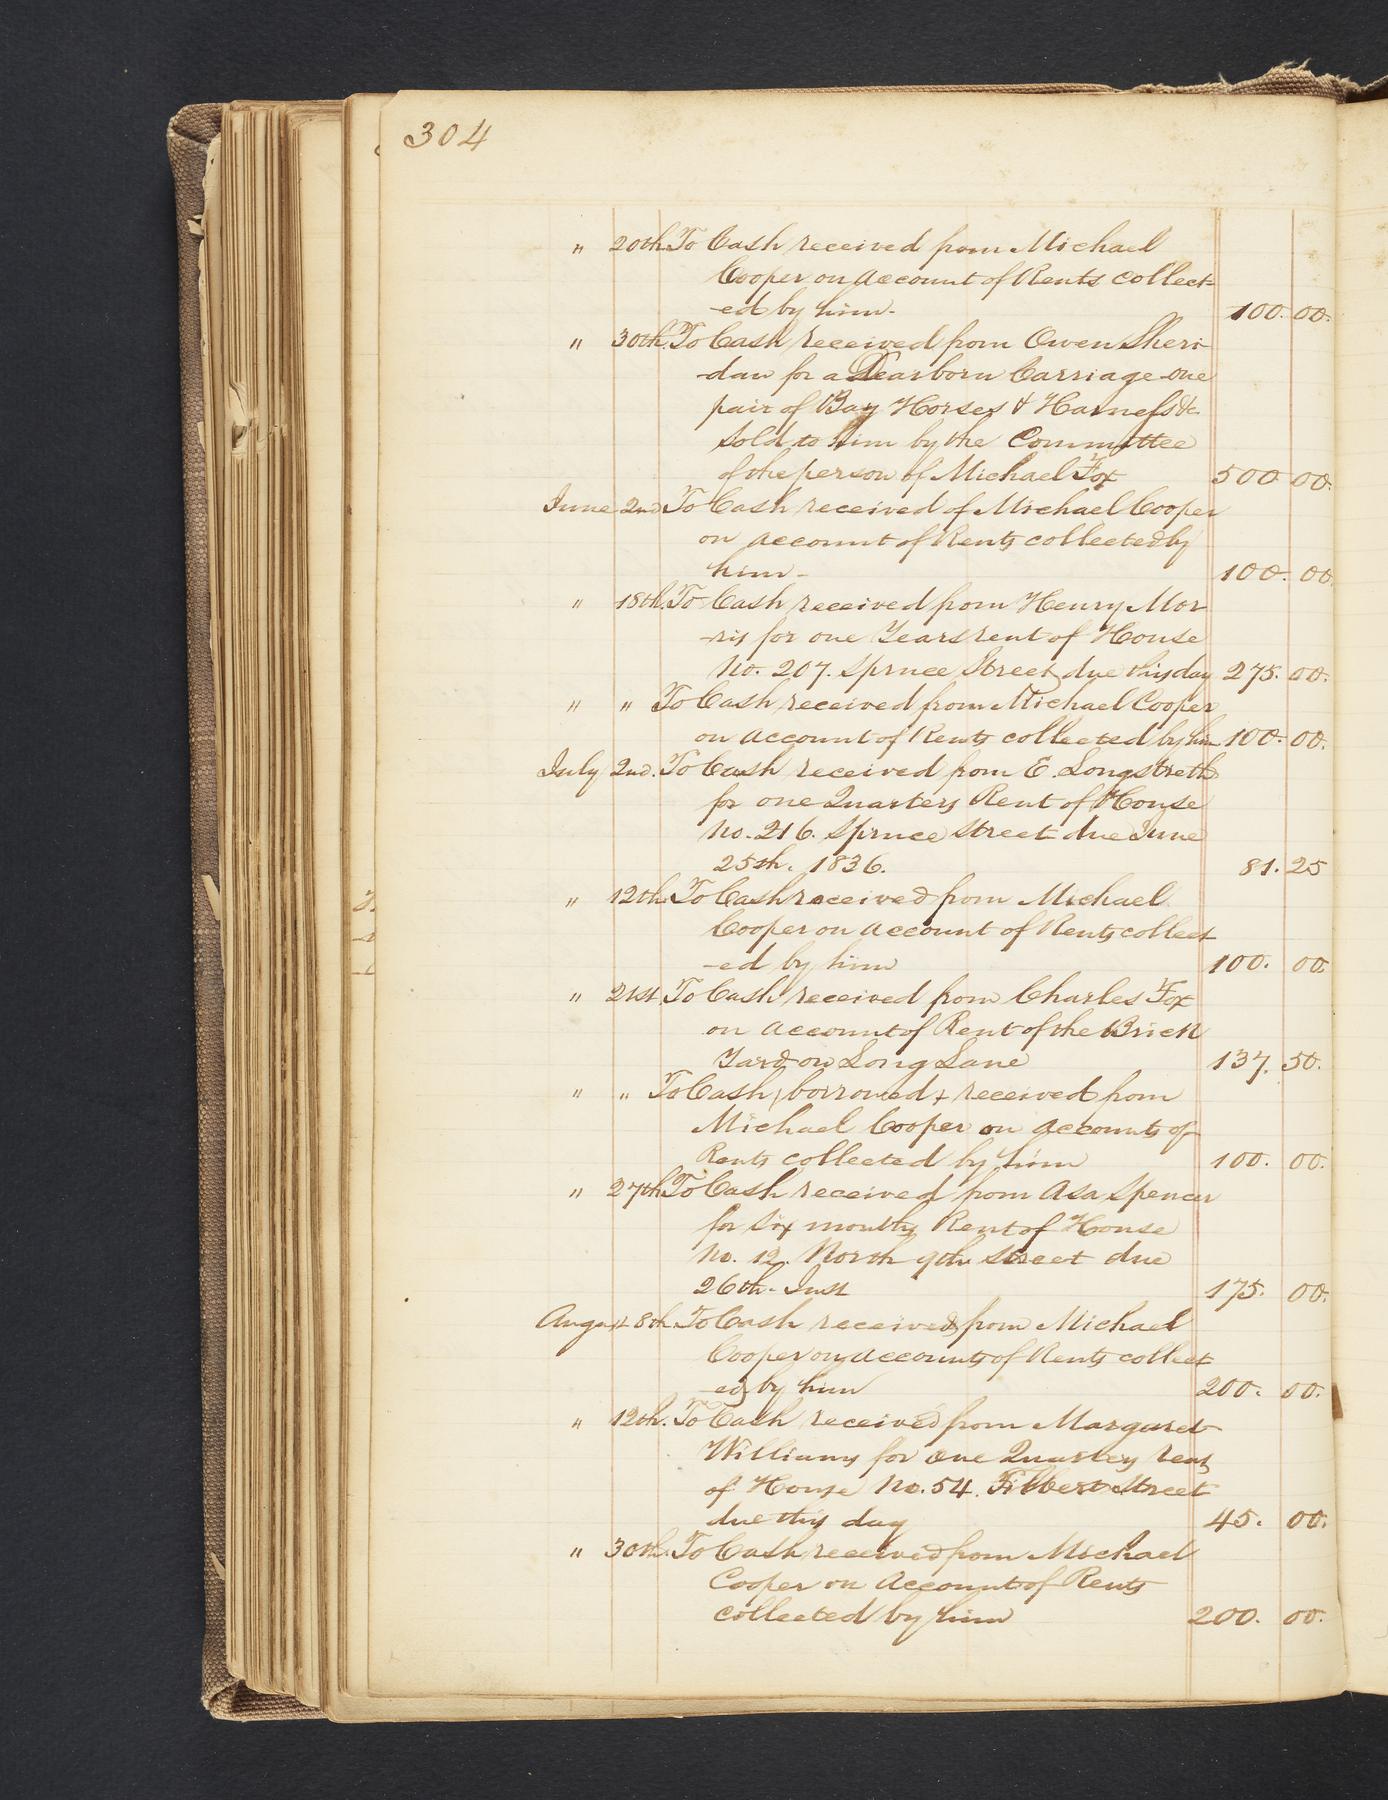 304
" 20th. To Cash received from Michael
Cooper on account of Rents collect-
-ed by him. 100. 00.
" 30th. To Cash received from Owen Sheri-
-dan for a Dearborn Carriage one
pair of Bay Horses & Harness &c
sold to him by the Committee
of the person of Michael Fox 500 00.
June 2nd. To Cash received of Michael Cooper
on account of Rents collected by
him. 100. 00
" 18th. To Cash received from Henry Mor-
-ris for one Years rent of House
No. 207. Spruce Street due this day 275. 00.
" " To Cash received from Michael Cooper
on account of Rents collected by him 100. 00.
July 2nd. To Cash received from E. Longstreth
for one Quarters Rent of House
No. 216. Spruce Street due June
25th. 1836. 81. 25
" 12th. To Cash received from Michael
Cooper on account of Rents collect-
-ed by him 100. 00
" 21st. To Cash received from Charles Fox
on account of Rent of the Brick
Yard on Long Lane 137. 50.
" " To Cash, borrowed & received from
Michael Cooper on accounts of
Rents collected by him 100. 00.
" 27th. To Cash received from Asa Spencer
for six months Rent of House
No. 12. North 9th. Street due
26th. Inst 175. 00.
August 8th. To Cash received from Michael
Cooper on accounts of Rents collect-
-ed by him 200. 00.
" 12th. To Cash received from Margaret
Williams for one Quarters rent
of House No. 54. Filbert Street
due this day 45. 00.
" 30th. To Cash received from Michael
Cooper on Account of Rents
collected by him 200. 00.